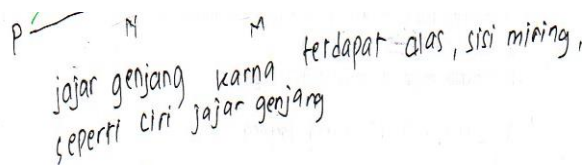 P N M
jajar genjang karna terdapat alas, sisi miring,
seperti ciri jajar genjang